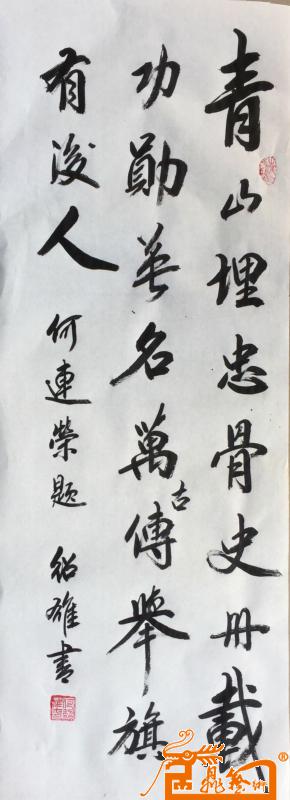 青山埋忠骨史册戴
功勛英名萬古傳舉旗
有後人
何連榮題 紹雄書